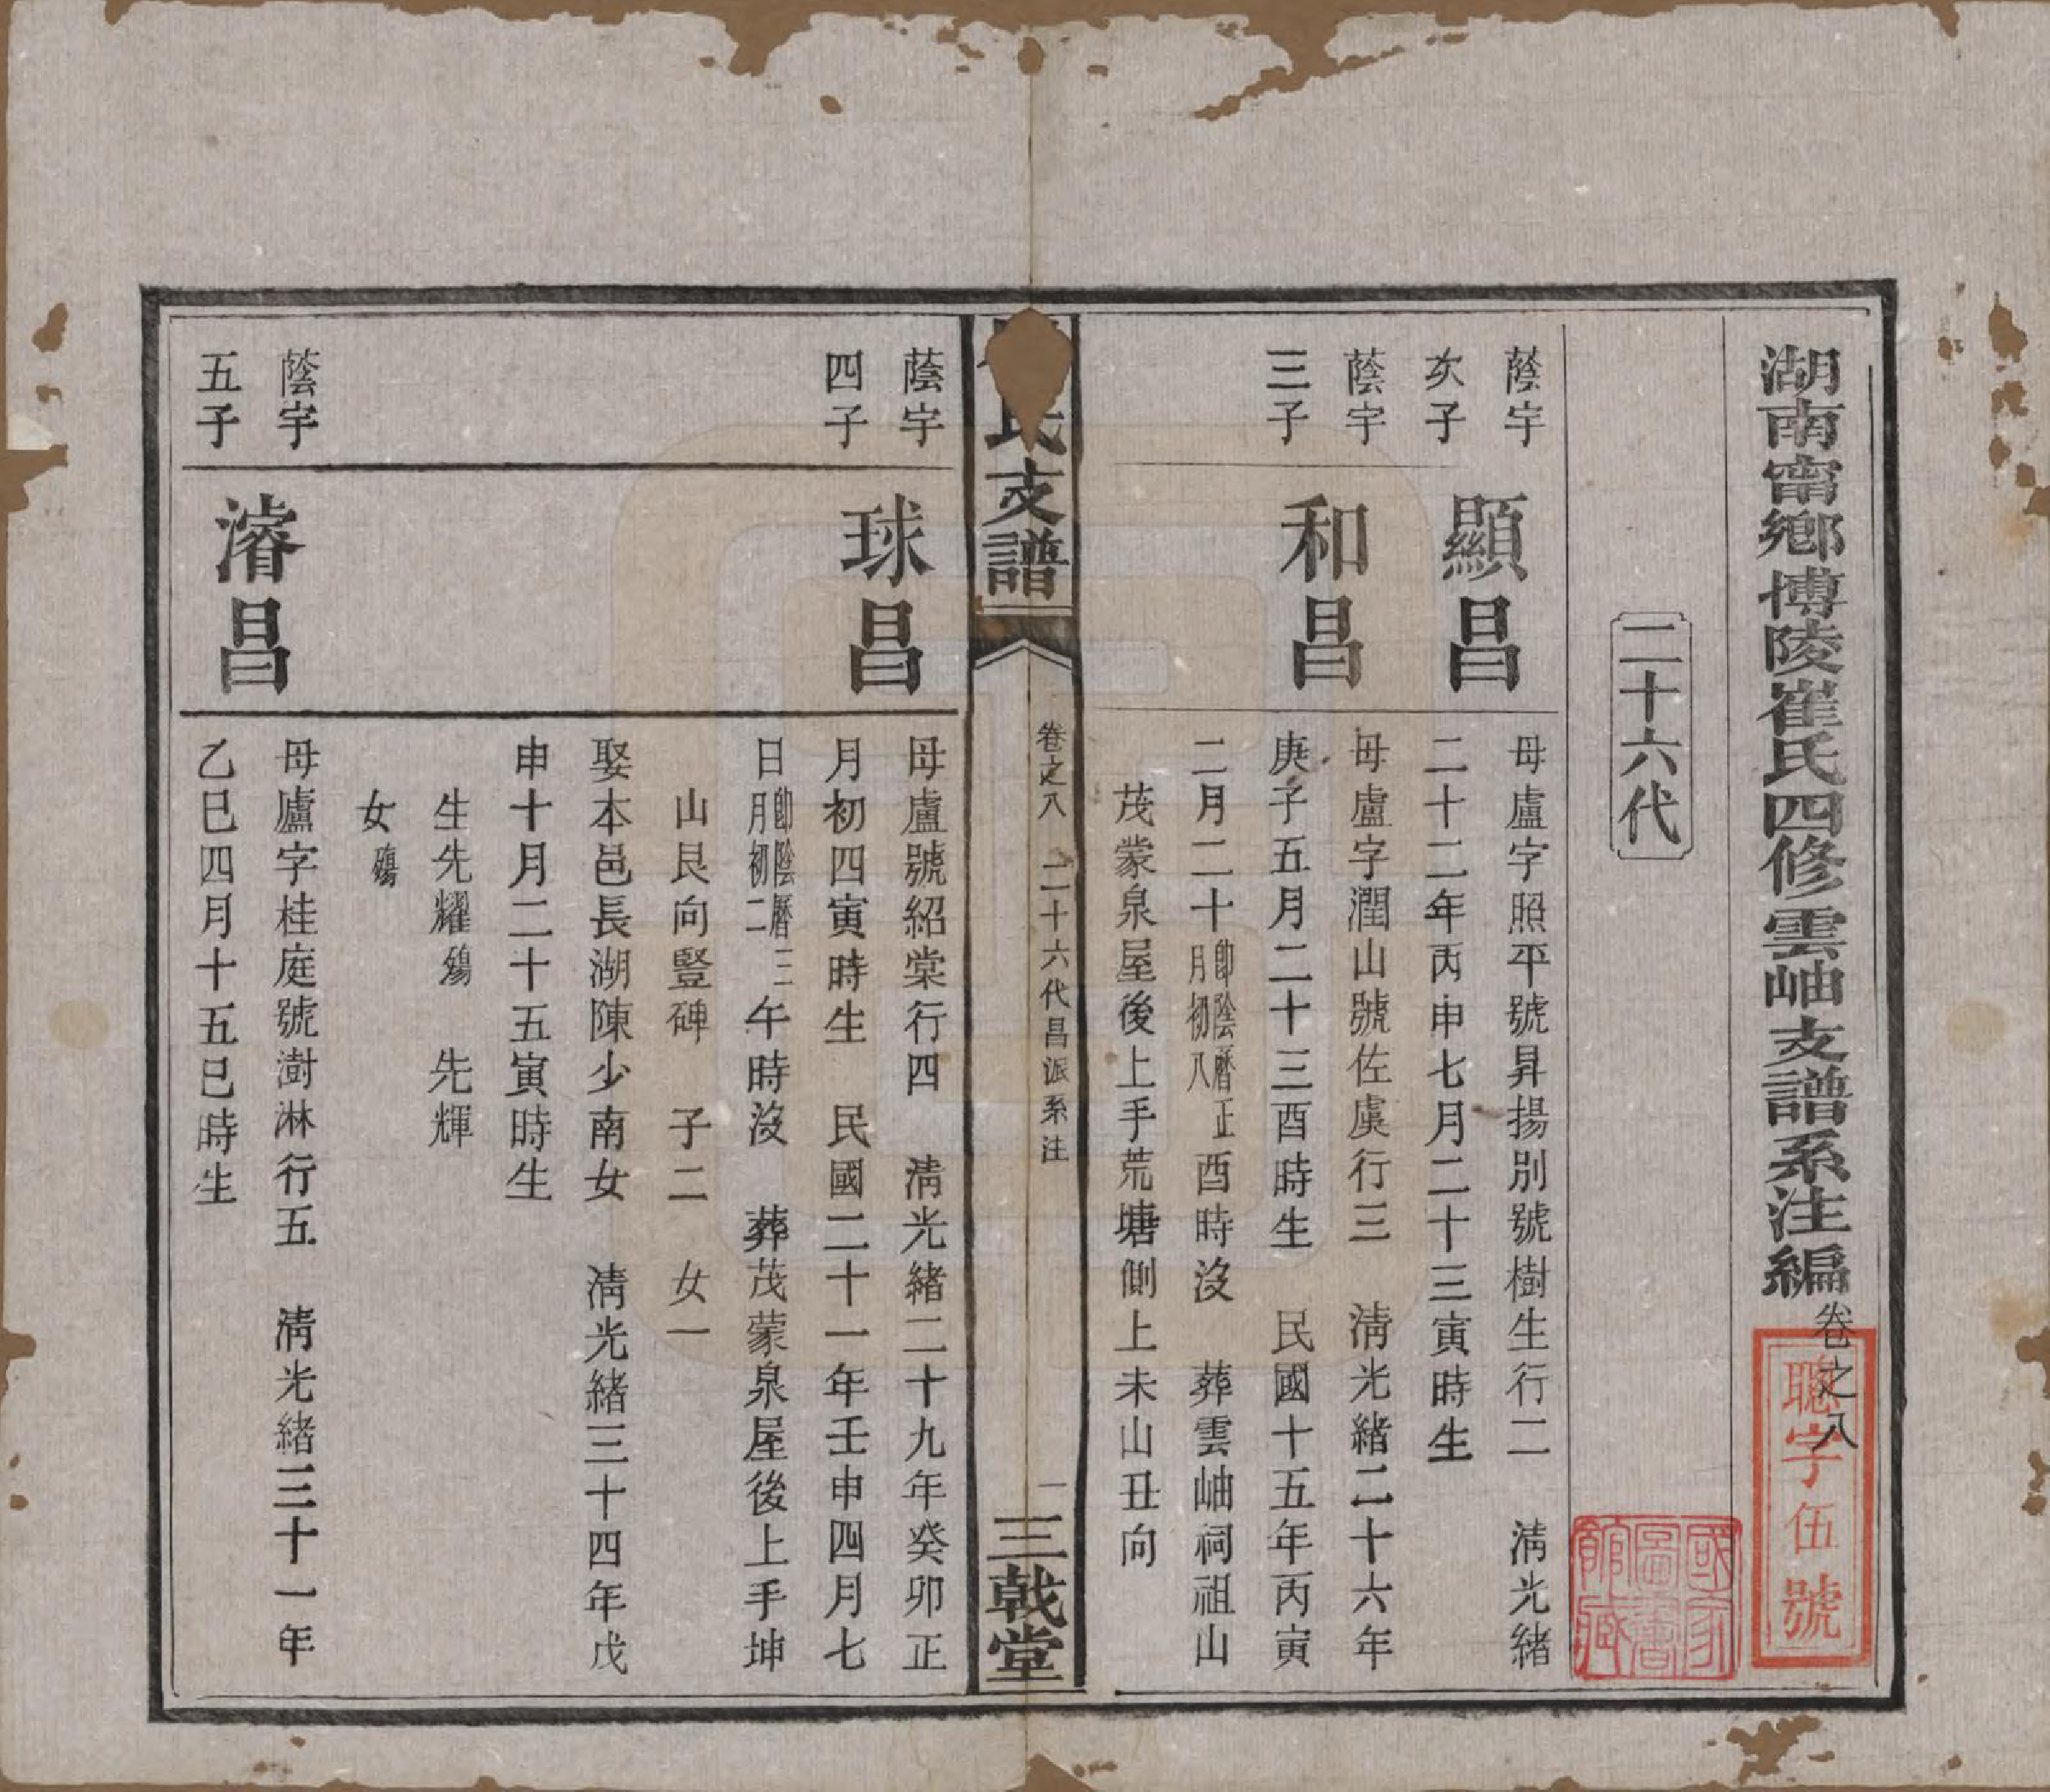 湖南甯鄉博陵崔氏四修雲岫支譜系注編卷之八
聰字伍號
國家圖書館藏
二十六代
蔭宇
次子
顯昌
母盧字照平號昇揚別號樹生行二　淸光緒
二十二年丙申七月二十三寅時生
蔭宇
三子
和昌
母盧字潤山號佐虞行三　淸光緒二十六年
庚子五月二十三酉時生　民國十五年丙寅
二月二十卽陰曆正月初八酉時沒　葬雲岫祠祖山
茂蒙泉屋後上手荒塘側上未山丑向
氏支譜
卷之八　二十六代昌派系注
一
三戟堂
蔭宇
四子
球昌
母盧號紹棠行四　淸光緒二十九年癸卯正
月初四寅時生　民國二十一年壬申四月七
日卽陰曆三月初二午時沒　葬茂蒙泉屋後上手坤
山艮向豎碑　子二　女一
娶本邑長湖陳少南女　淸光緒三十四年戊
申十月二十五寅時生
生先耀殤　先輝
女殤
蔭宇
五子
濬昌
母盧字桂庭號澍淋行五　淸光緒三十一年
乙巳四月十五巳時生